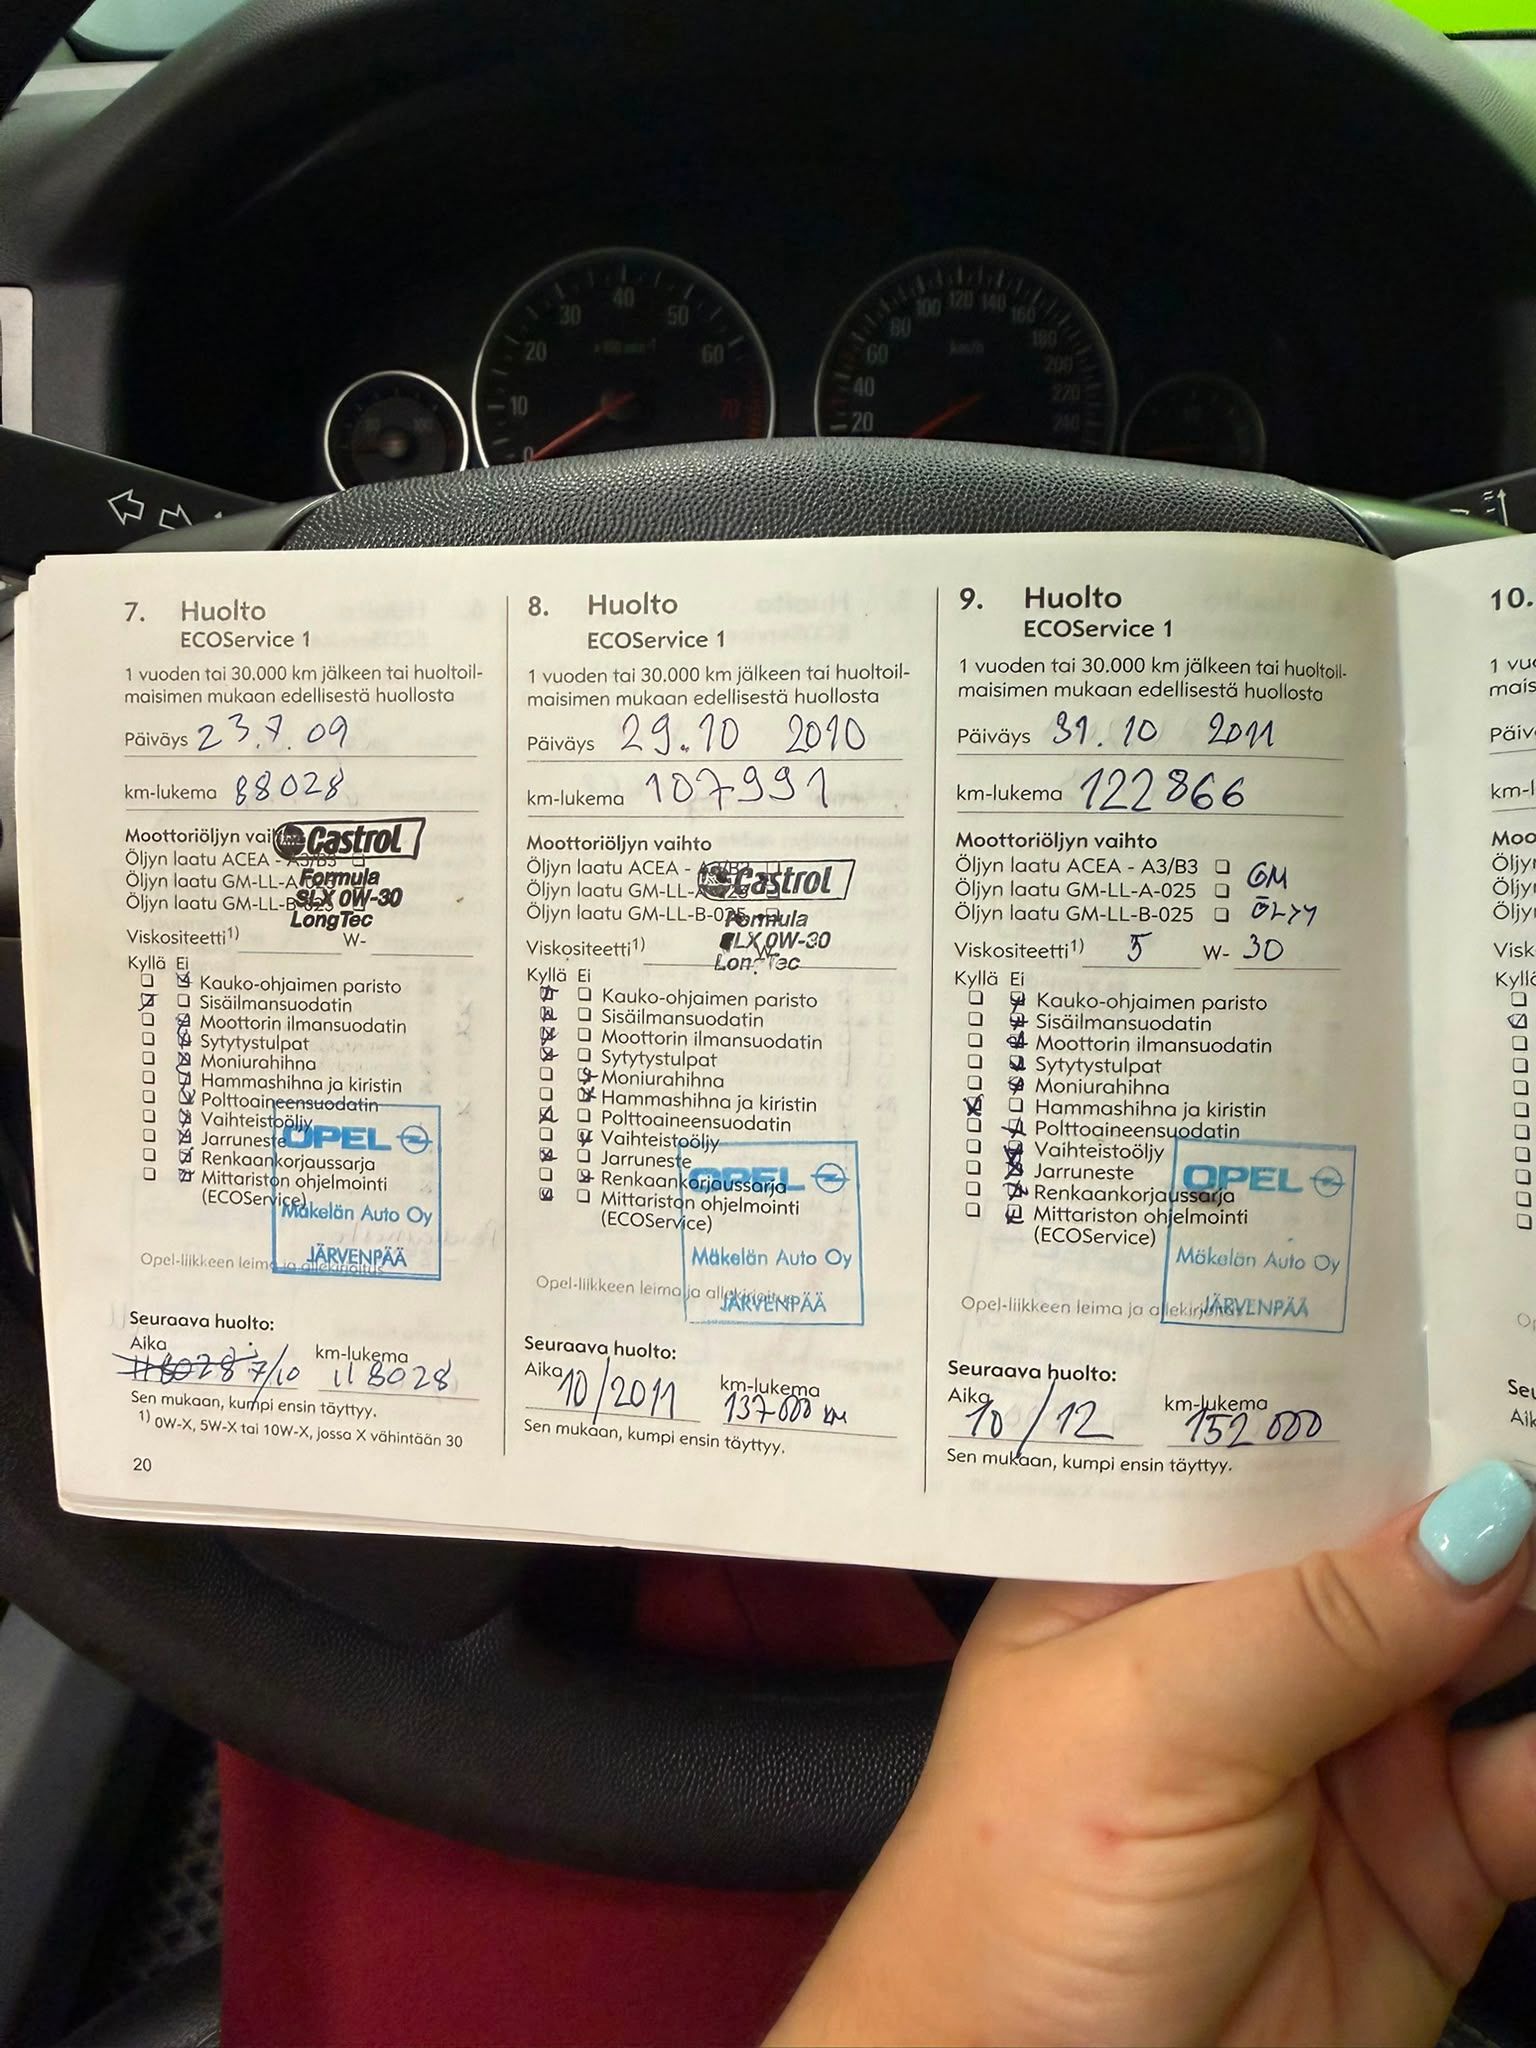 10 20 30 40 50 60 70
x100 min-1
20 40 60 80 100 120 140 160 180 200 220 240
km/h
7. Huolto
ECOService 1
1 vuoden tai 30.000 km jälkeen tai huoltoil-
maisimen mukaan edellisestä huollosta
Päiväys 23.7.09
km-lukema 88028
Moottoriöljyn vaihto
Öljyn laatu ACEA - A3/B3
Öljyn laatu GM-LL-A-025
Öljyn laatu GM-LL-B-025
Castrol
Formula
SLX 0W-30
LongTec
Viskositeetti1) W-
Kyllä Ei
Kauko-ohjaimen paristo
Sisäilmansuodatin
Moottorin ilmansuodatin
Sytytystulpat
Moniurahihna
Hammashihna ja kiristin
Polttoaineensuodatin
Vaihteistoöljy
Jarruneste
Renkaankorjaussarja
Mittariston ohjelmointi
(ECOService)
OPEL
Mäkelän Auto Oy
JÄRVENPÄÄ
Opel-liikkeen leima ja allekirjoitus
Seuraava huolto:
Aika km-lukema
118028 7/10 118028
Sen mukaan, kumpi ensin täyttyy.
1) 0W-X, 5W-X tai 10W-X, jossa X vähintään 30
20
8. Huolto
ECOService 1
1 vuoden tai 30.000 km jälkeen tai huoltoil-
maisimen mukaan edellisestä huollosta
Päiväys 29.10 2010
km-lukema 107991
Moottoriöljyn vaihto
Öljyn laatu ACEA - A3/B3
Öljyn laatu GM-LL-A-025
Öljyn laatu GM-LL-B-025
Castrol
Formula
SLX 0W-30
LongTec
Viskositeetti1) W-
Kyllä Ei
Kauko-ohjaimen paristo
Sisäilmansuodatin
Moottorin ilmansuodatin
Sytytystulpat
Moniurahihna
Hammashihna ja kiristin
Polttoaineensuodatin
Vaihteistoöljy
Jarruneste
Renkaankorjaussarja
Mittariston ohjelmointi
(ECOService)
OPEL
Mäkelän Auto Oy
JÄRVENPÄÄ
Opel-liikkeen leima ja allekirjoitus
Seuraava huolto:
Aika km-lukema
10/2011 137000 km
Sen mukaan, kumpi ensin täyttyy.
9. Huolto
ECOService 1
1 vuoden tai 30.000 km jälkeen tai huoltoil-
maisimen mukaan edellisestä huollosta
Päiväys 31.10 2011
km-lukema 122866
Moottoriöljyn vaihto
Öljyn laatu ACEA - A3/B3
Öljyn laatu GM-LL-A-025 GM
Öljyn laatu GM-LL-B-025 ÖLJY
Viskositeetti1) 5 W- 30
Kyllä Ei
Kauko-ohjaimen paristo
Sisäilmansuodatin
Moottorin ilmansuodatin
Sytytystulpat
Moniurahihna
Hammashihna ja kiristin
Polttoaineensuodatin
Vaihteistoöljy
Jarruneste
Renkaankorjaussarja
Mittariston ohjelmointi
(ECOService)
OPEL
Mäkelän Auto Oy
JÄRVENPÄÄ
Opel-liikkeen leima ja allekirjoitus
Seuraava huolto:
Aika km-lukema
10/12 152000
Sen mukaan, kumpi ensin täyttyy.
10.